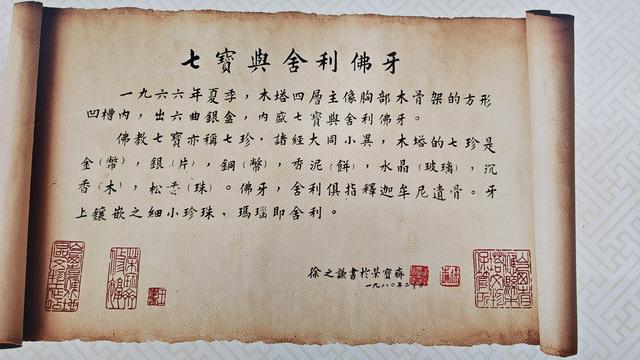 七寶與舍利佛牙
一九六六年夏季，木塔四層主像胸部木骨架的方形
凹槽內，出六曲銀盒，內盛七寶與舍利佛牙。
佛教七寶亦稱七珍，諸經大同小異，木塔的七珍是
金（幣），銀（片），銅（幣），香泥（餅），水晶（玻璃），沉
香（木），松香（珠）。佛牙，舍利俱指釋迦牟尼遺骨。牙
上鑲嵌之細小珍珠、瑪瑙即舍利。
徐之謙書於榮寶齋
一九八〇年二月